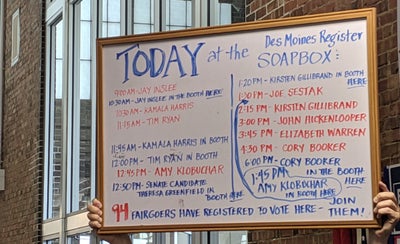 TODAY at the Des Moines Register
SOAPBOX:
9:00AM - JAY INSLEE
10:30AM - JAY INSLEE IN THE BOOTH HERE
10:30AM - KAMALA HARRIS
11:15AM - TIM RYAN
11:45AM - KAMALA HARRIS IN BOOTH
12:00PM - TIM RYAN IN BOOTH
12:45PM - AMY KLOBUCHAR
12:50PM - SENATE CANDIDATE
THERESA GREENFIELD IN
BOOTH HERE
1:20PM - KIRSTEN GILLIBRAND IN BOOTH
HERE
1:30PM - JOE SESTAK
2:15PM - KIRSTEN GILLIBRAND
3:00PM - JOHN HICKENLOOPER
3:45PM - ELIZABETH WARREN
4:30PM - CORY BOOKER
6:00PM - CORY BOOKER
IN THE BOOTH
HERE
1:45PM
AMY KLOBUCHAR
IN BOOTH HERE
94 FAIRGOERS HAVE REGISTERED TO VOTE HERE - JOIN
THEM!